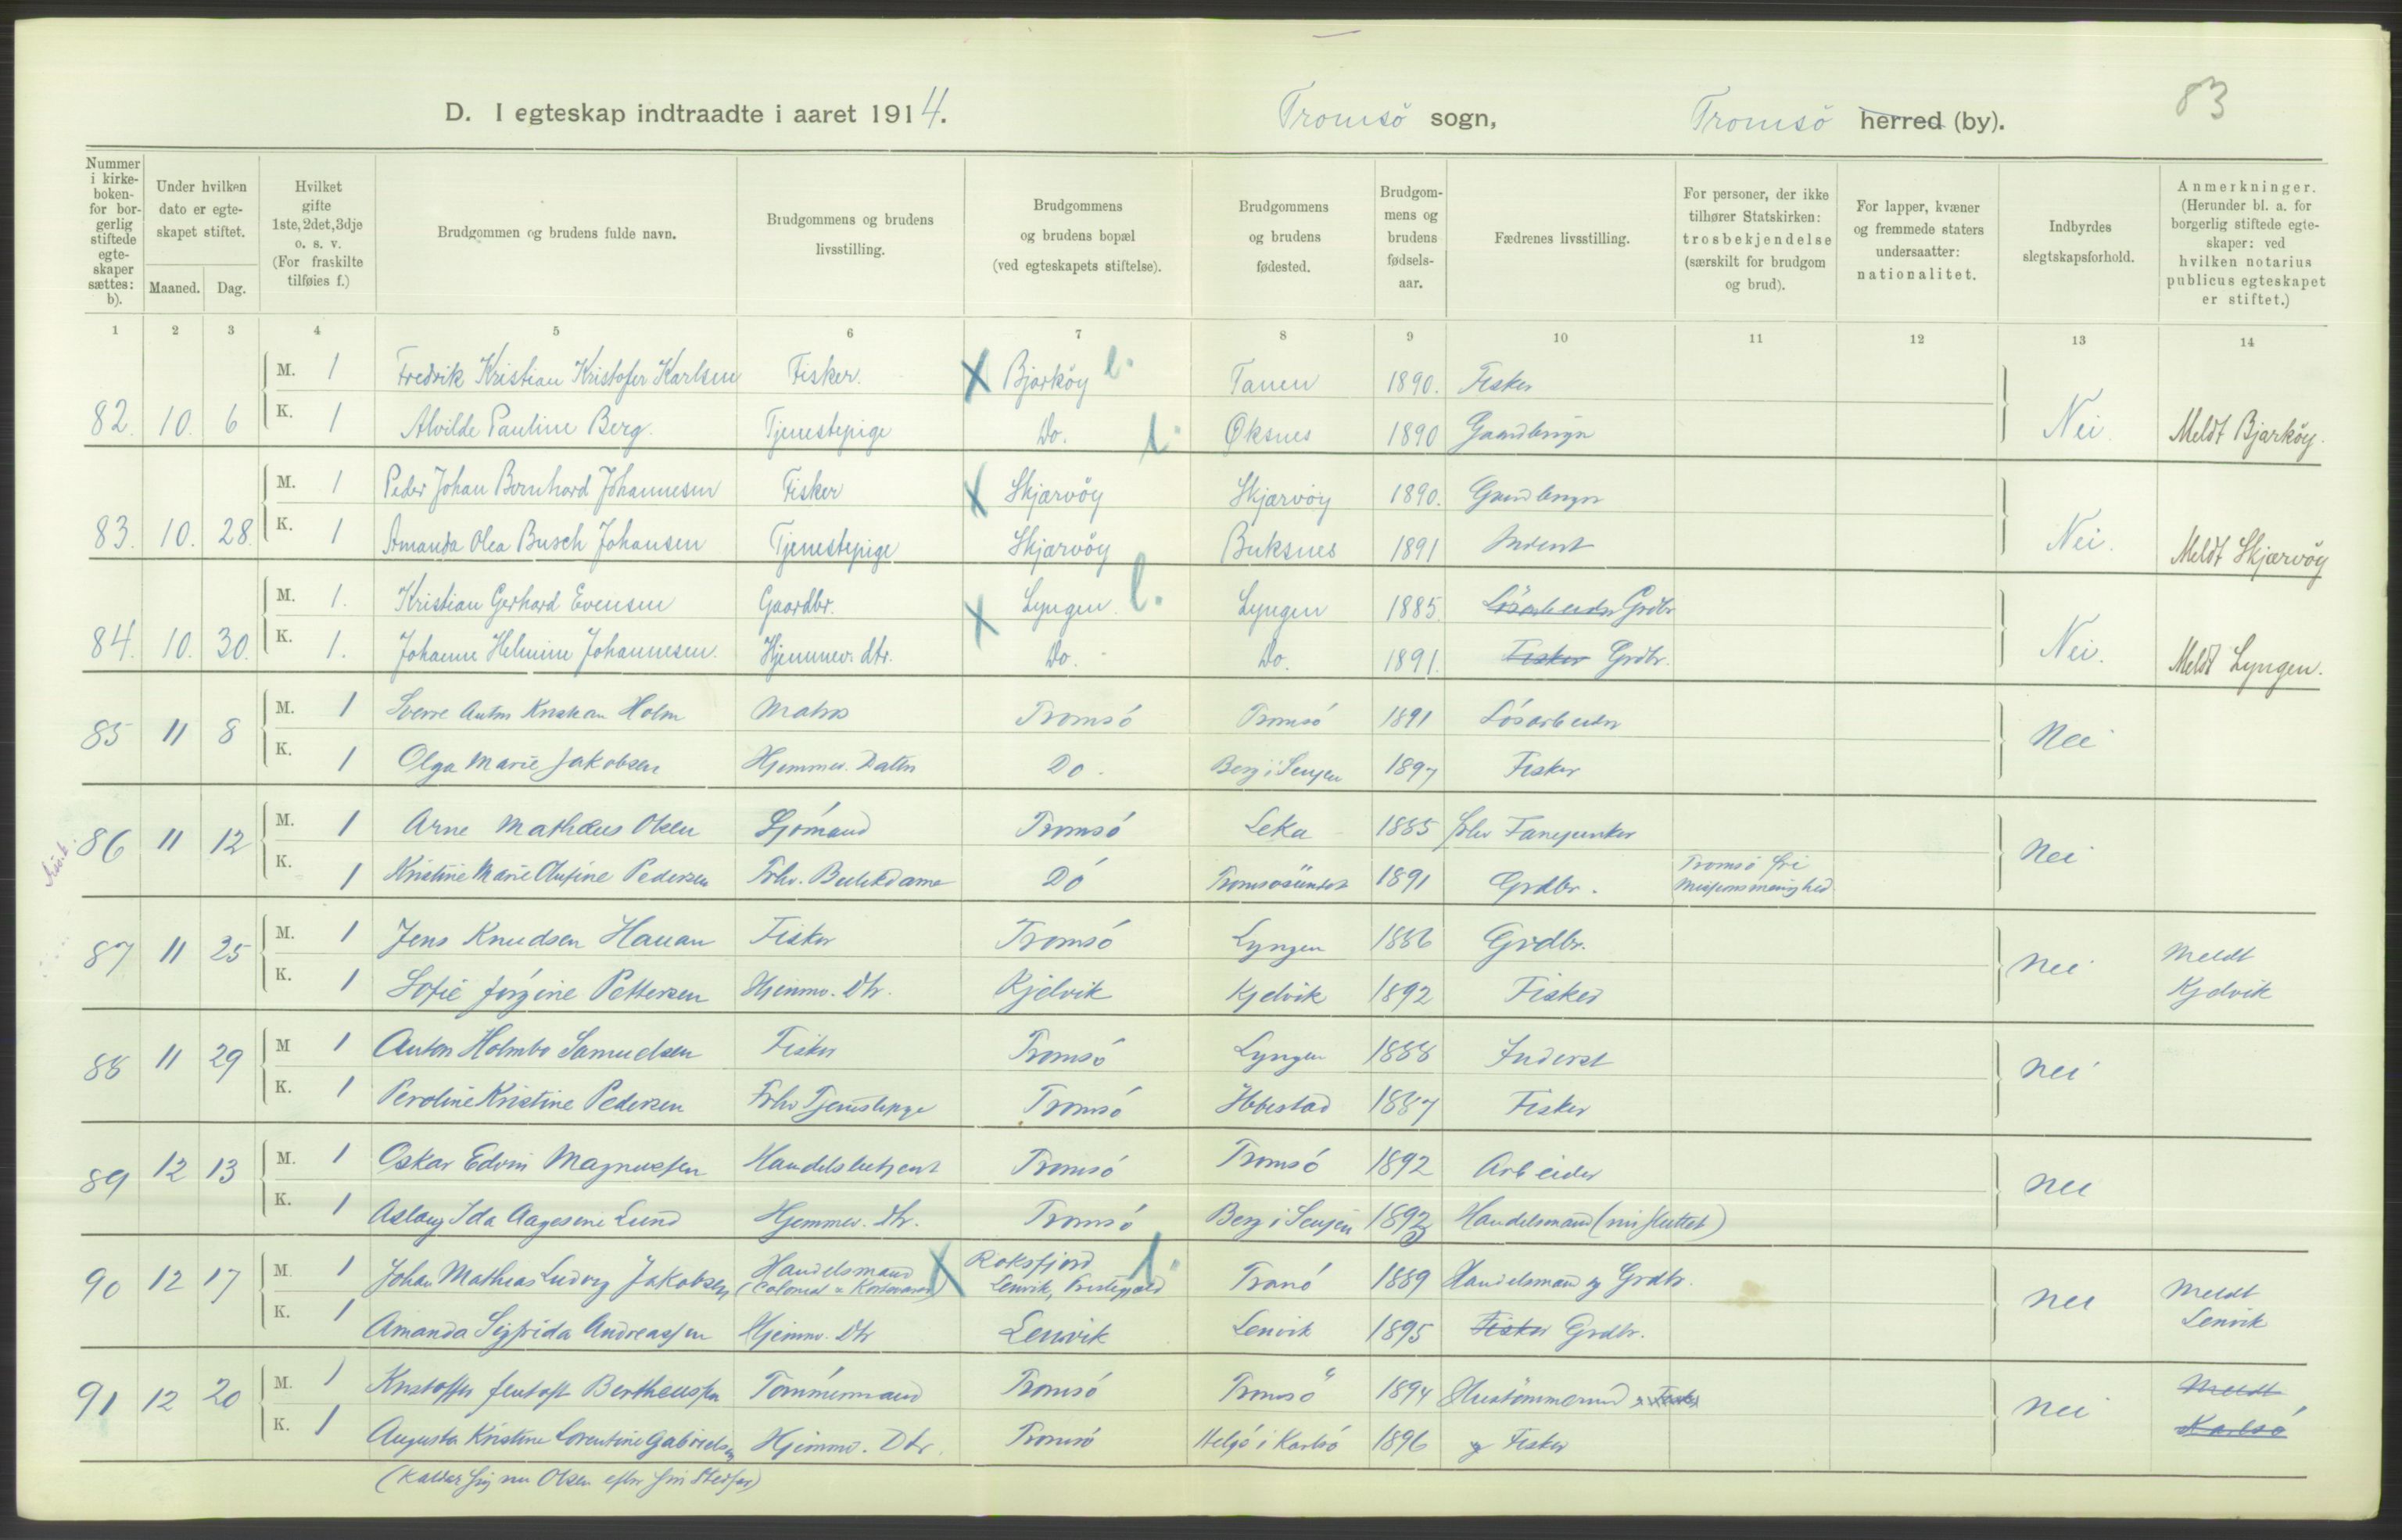 83
D. I egteskap indtraadte i aaret 1914. Tromsö sogn, Tromsö herred (by).
Nummer i kirkeboken- for borgerlig stiftede egteskaper sættes: b).
Under hvilken dato er egteskapet stiftet.
Maaned. Dag.
Hvilket gifte 1ste, 2det, 3dje o. s. v. (For fraskilte tilføies f.)
Brudgommen og brudens fulde navn.
Brudgommens og brudens livsstilling.
Brudgommens og brudens bopæl (ved egteskapets stiftelse).
Brudgommens og brudens fødested.
Brudgommens og brudens fødselsaar.
Fædrenes livsstilling.
For personer, der ikke tilhører Statskirken: trosbekjendelse (særskilt for brudgom og brud).
For lapper, kvæner og fremmede staters undersaatter: nationalitet.
Indbyrdes slegtskapsforhold.
Anmerkninger. (Herunder bl. a. for borgerlig stiftede egteskaper: ved hvilken notarius publicus egteskapet er stiftet.)
1 2 3 4 5 6 7 8 9 10 11 12 13 14
M. 1 Fredrik Kristian Kristofer Karlsen Fisker. X Bjarköy l. Tanen 1890. Fisker
82. 10. 6 K. 1 Alvilde Pauline Berg. Tjenestepige Do. l. Øksnes 1890 Gaardbruger Nei. Meldt Bjarköy.
M. 1 Peder Johan Bernhard Johannesen Fisker X Skjærvöy Skjærvöy 1890. Gaardbruger
83. 10. 28. K. 1 Amanda Olea Busch Johansen Tjenestepige Skjærvöy Buksnes 1891 Inderst Nei. Meldt Skjærvöy
M. 1. Kristian Gerhard Evensen Gaardbr. X Lyngen. l. Lyngen 1885. Lösarbeider Grdbr
84. 10. 30. K. 1. Johanne Helmine Johannesen. Hjemmev. dtr. Do. Do. 1891. Fisker Grdbr. Nei. Meldt Lyngen.
85 11 8 M. 1 Sverre Anton Kristian Holm Matros Tromsó Tromsó 1891 Lósarbeider
K. 1 Olga Marie Jakobsen Hjemmev. Datter Do. Berg i Senjen 1897 Fisker Nei
86 11 12 M. 1 Arne Mathæus Olsen Sjómand Tromsó Leka 1885 fhv Fanejunker
K. 1 Kristine Marie Olufine Pedersen Fhv. Butikdame Dó Tromsøsundet 1891 Grdbr. Tromsö fri Missionsmenighed Nei
87 11 25 M. 1 Jens Knudsen Hauan Fisker Tromsó Lyngen 1886 Grdbr.
K. 1 Sofie Jörgine Pettersen Hjemmv. Dtr. Kjelvik Kjelvik 1892 Fisker Nei Meldt Kjelvik
88 11 29 M 1 Anton Holmbo Samuelsen Fisker Tromsó Lyngen 1888 Inderst
K. 1 Peroline Kristine Pedersen Fhv Tjenestepige Tromsó Ibbestad 1887 Fisker Nei
89 12 13 M. 1 Oskar Edvin Magnussen Handelsbetjent Tromsó Tromsó 1892 Arbeider
K. 1 Aslaug Ida Aagesene Lund Hjemmev. Dtr. Tromsó Berg i Senjen 1893 Handelsmand (nu sluttet) Nei
90 12 17 M. 1 Johan Mathias Ludvig Jakobsen Handelsmand (Colonial & Kortevarer) X Roksfjord Lenvik, Prestegjeld l. Tranó 1889 Handelsmand og Grdbr.
K. 1 Amanda Sigfrida Andreassen Hjemmv. Dtr Lenvik Lenvik 1895 Fisker Grdbr. Nei Meldt Lenvik
91 12 20 M. 1 Kristoffer Jentoft Bertheussen Tómmermand Tromsó Tromsö 1894 Hustömmermand & Fisker
K. 1 Augusta Kristine Lorentine Gabrielsen Hjemmv. Dtr. Tromsó Helgó i Karlsó 1896 Fisker Nei Meldt Karlsó
(Kalder sig nu Olsen efter sin Stedfar)